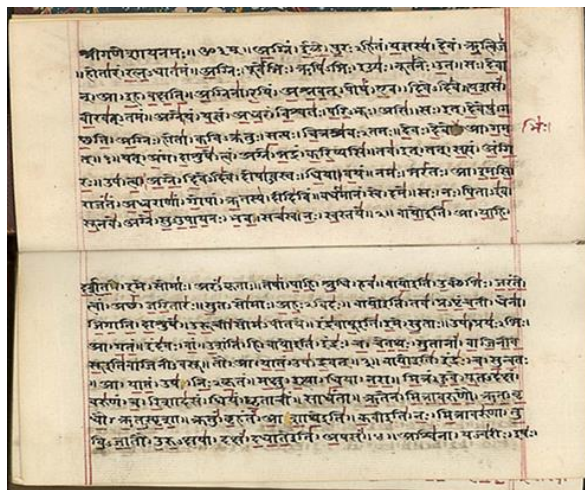 श्रीगणेशायनमः॥ॐ३म्॥अग्निं।ईळे।पुरःऽहितं।यज्ञस्य।देवं।ऋत्विजं
॥होतारं।रत्नऽधातमं॥अग्निः।पूर्वेभिः।ऋषिऽभिः।ईड्यः।नूतनैः।उत।सः।देवा
न्।आ।इह।वक्षति॥अग्निना।रयिं।अश्नवत्।पोषं।एव।दिवेऽदिवे॥यशसं
वीरवत्ऽतमं॥अग्ने।यं।यज्ञं।अध्वरं।विश्वतः।परिऽभूः।असि।सः।इत्।देवेषु।ग
च्छति॥अग्निः।होता।कविऽक्रतुः।सत्यः।चित्रश्रवःऽतमः॥देवः।देवेभिः।आ।गम
त्॥१॥यत्।अंग।दाशुषे।त्वं।अग्ने।भद्रं।करिष्यसि।तव।इत्।तत्।सत्यं।अंगि
रः॥उप।त्वा।अग्ने।दिवेऽदिवे।दोषाऽवस्तः।धिया।वयं।नमः।भरंतः।आ।इमसि
राजंतं।अध्वराणां।गोपां।ऋतस्य।दीदिविं।वर्धमानं।स्वे।दमे॥सः।नः।पिताऽइव
सूनवे।अग्ने।सुऽउपायनः।भव।सचस्व।नः।स्वस्तये॥२॥वायोइति।आ।याहि
दर्शत।इमे।सोमाः।अरंऽकृताः।तेषां।पाहि।श्रुधि।हवं॥वायोइति।उक्थेभिः।जरंते
त्वां।अच्छ।जरितारः।सुतऽसोमाः।अहःऽविदः॥वायोइति।तव।प्रऽपृंचती।धेना
जिगाति।दाशुषे।उरूची।सोमऽपीतये॥इंद्रवायूइति।इमे।सुताः।उप।प्रयःऽभिः
आ।गतं।इंदवः।वां।उशंति।हि॥वायोइति।इंद्रः।च।चेतथः।सुतानां।वाजिनीव
सूइतिवाजिनीऽवसू।तौ।आ।यातं।उप।द्रवत्॥३॥वायोइति।इंद्रः।च।सुन्वतः
॥आ।यातं।उप।निःऽकृतं।मक्षु।इत्था।धिया।नरा॥मित्रं।हुवे।पूतऽदक्षं
वरुणं।च।रिशादसं।धियं।घृताचीं।साधंता॥ऋतेन।मित्रावरुणौ।ऋतऽवृ
धौ।ऋतऽस्पृशा।क्रतुं।बृहंतं।आशाथेइति॥कवीइति।नः।मित्रावरुणा।तु
विऽजातौ।उरुऽक्षया।दक्षं।दधातेइति।अपसं॥४॥अश्विना।यज्वरीः।इषः